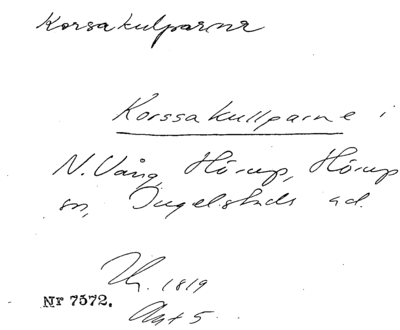 Korsakulparna
Korssakullparne i
N. Vång, Hörup, Hörup
sn, Ingelstads hd.
Th. 1819
Akt 5
Nr 7572.